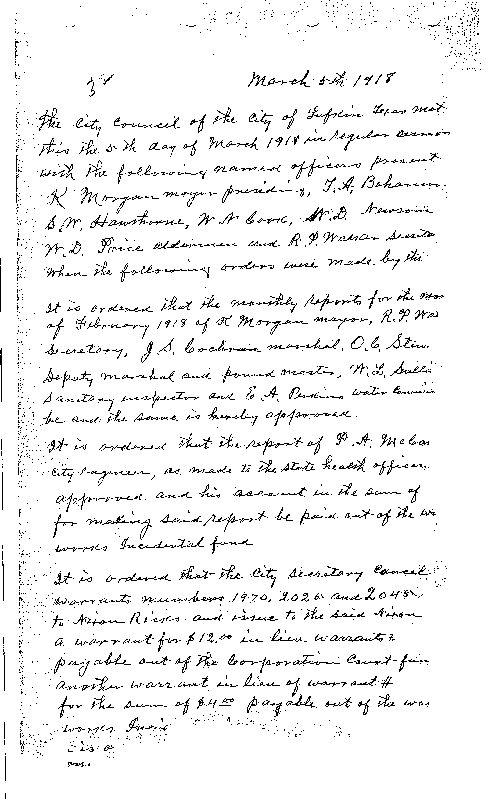 March 5th 1918
The City Council of the City of Lufkin Texas met
this the 5th day of March 1918 in regular session
with the following named officers present
K Morgan mayor presiding, T. A,
S. W. Hawthorne, W N Cook, W. D. Newsom
W. D. Price aldermen and R. P. Walker
When the following orders were made by the
It is ordered that the monthly reports for the
of February 1918 of K Morgan mayor, R. P. Wa
Secretary, J S. Cochran marshal, O. C. Stew
Deputy marshal and pound master, W. L.
Sanitary inspector and E A, Perkins Water
be and the same is hereby approved
It is ordered that the report of A.
City Engineer, as made to the State health officer,
approved and his account in the sum of
for making said report be paid out of the wa
works Incidental fund
It is ordered that the City Secretary Cancel
warrants numbers 1970, 2020 and 2048
to Nixon Ricks and issue to the said Nixon
a warrant for $12.00 in lieu warrants
payable out of the Corporation Court fun
another warrant in lieu of warrant #
for the sum of $4.00 payable out of the wa
works